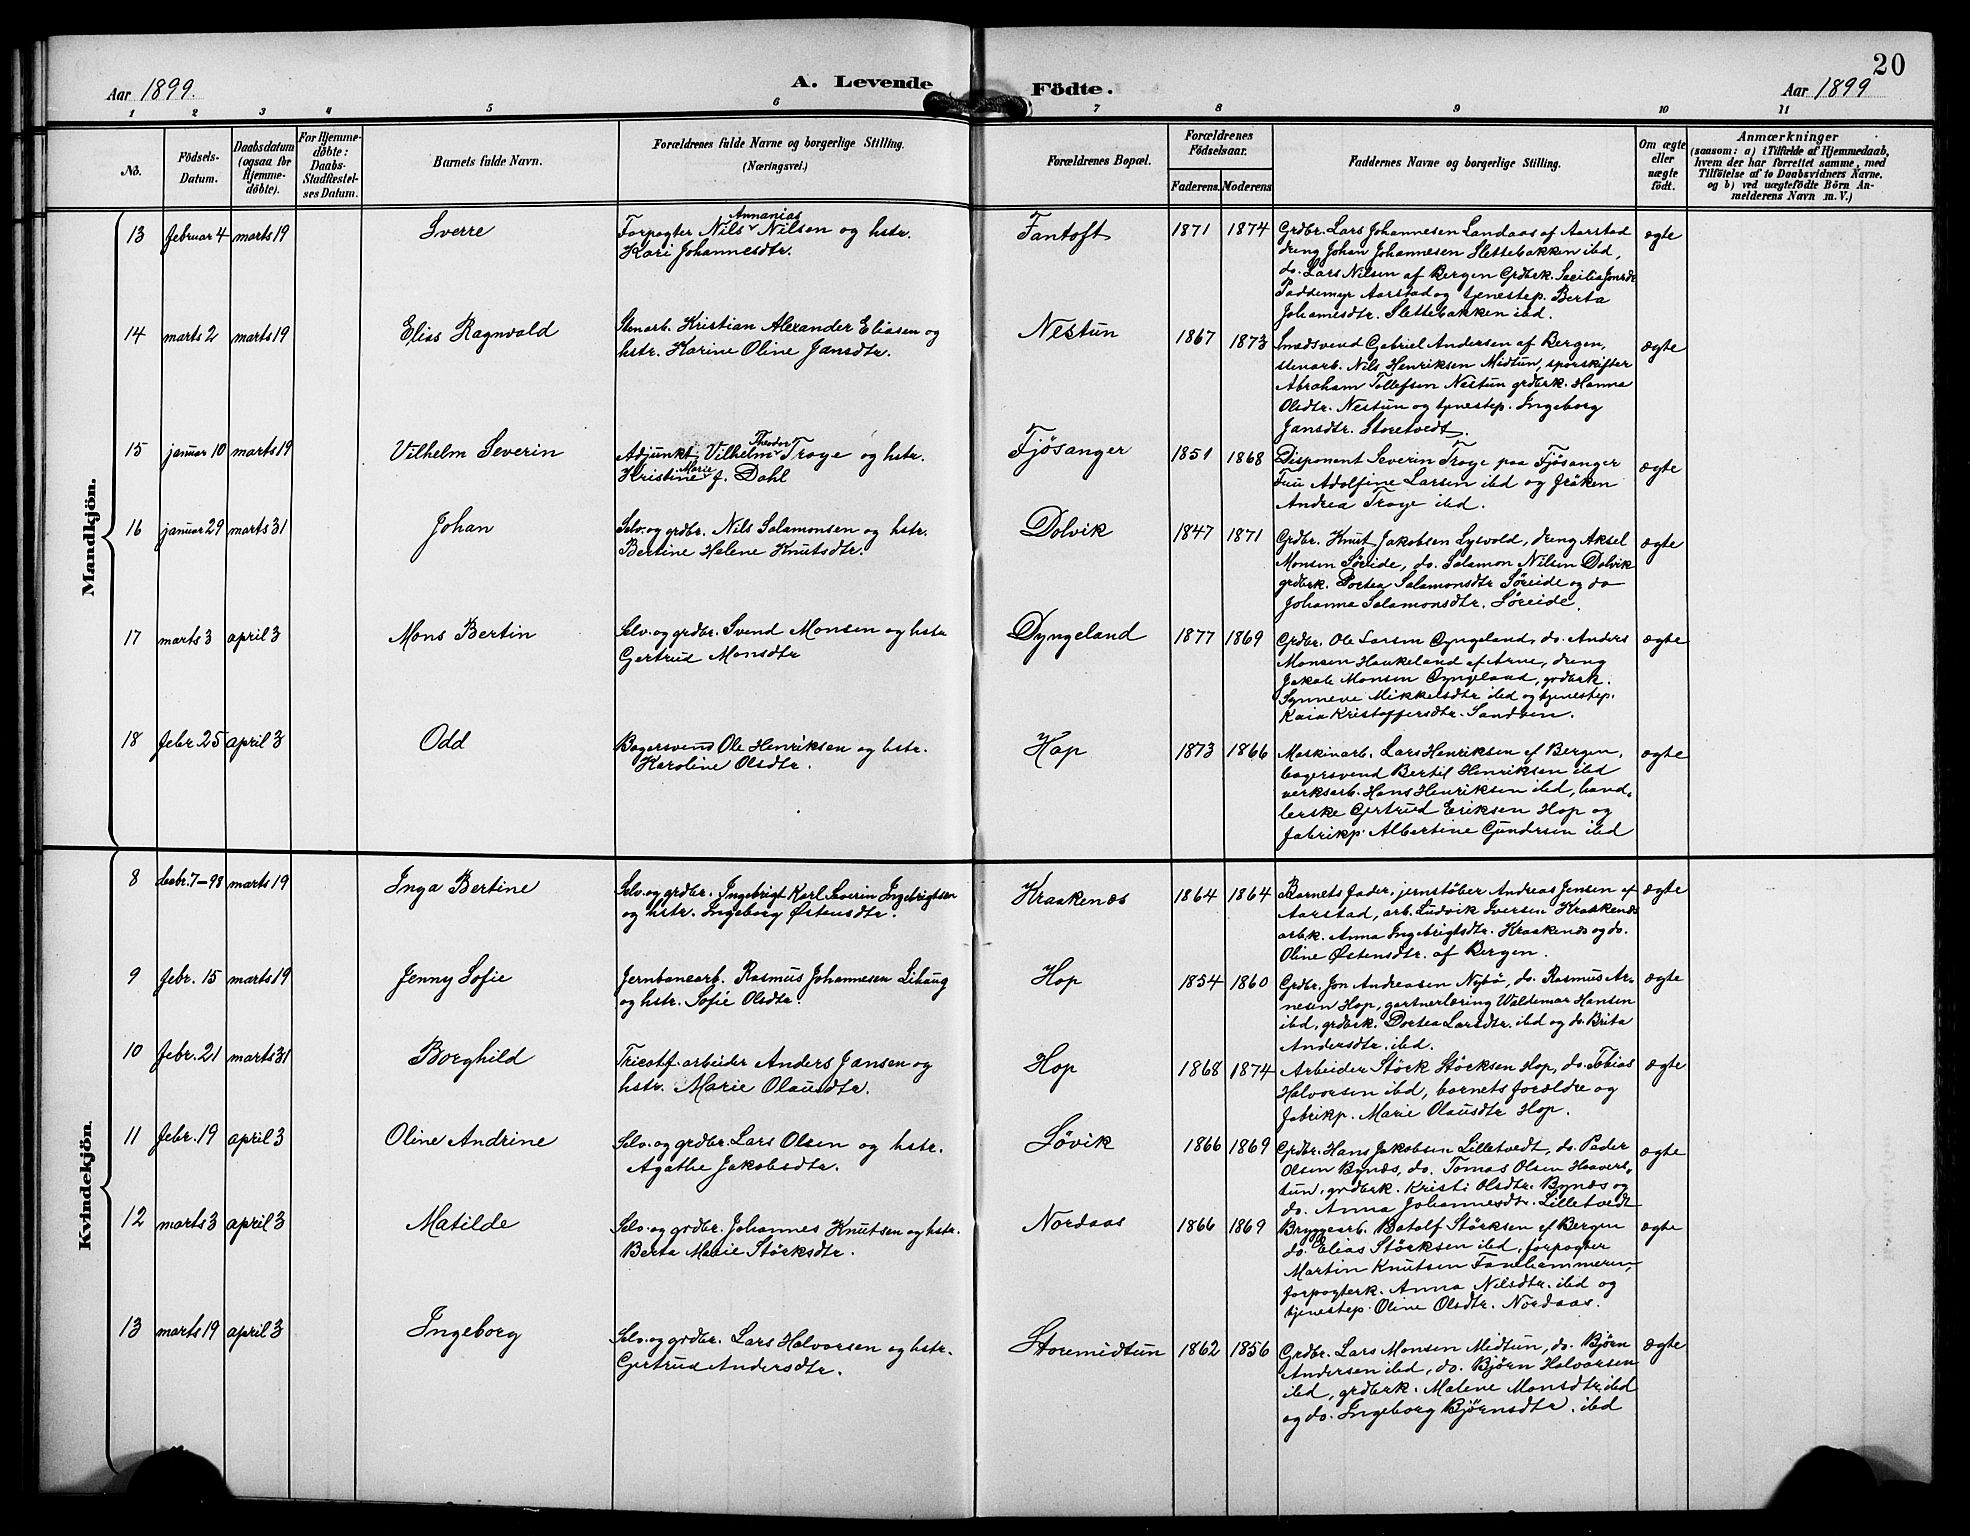 20
Aar 1899.
A. Levende
Födte.
Aar 1899
1 2 3 4 5 6 7 8 9 10 11
No.
Födsels-
Datum.
Daabsdatum
(ogsaa för
Hjemme-
döbte).
For Hjemme-
döbte:
Daabs-
Stadfæstel-
ses Datum.
Barnets fulde Navn.
Forældrenes fulde Navne og borgerlige Stilling.
(Næringsvei.)
Forældrenes Bopæl.
Forældrenes
Födselsaar.
Faderens. Moderens
Faddernes Navne og borgerlige Stilling.
Om ægte
eller
uægte
födt.
Anmærkninger
(saasom: a) i Tilfælde af Hjemmedaab,
hvem der har forrettet samme, med
Tilföielse af to Daabsvidners Navne.
og b) ved uægtefödte Börn An-
melderens Navn m.V.)
Mandkjön.
13 februar 4 marts 19 Sverre
Annanias
Forpagter Nils Nilsen og hstr.
Kari Johannesdtr.
Fantoft 1871 1874
Grdbr. Lars Johannesen Landaas af Aarstad
dreng Johan Johannesen Slettebakken ibd,
do. Lars Nilsen af Bergen Grdbrk. Secilia Jonsdr
Paddemyr Aarstad og tjenestep. Berta
Johannesdtr. Slettebakken ibd.
ægte
14 marts 2 marts 19 Elias Ragnvald
Stenarb. Kristian Alexander Eliasen og
hstr. Karine Oline Jansdtr.
Nestun 1867 1873
Smedsvend Gabriel Andersen af Bergen,
stenarb. Nils Henriksen Midtun, sporskifter
Abraham Tollefsen Nestun grdbrk. Hanna
Olsdtr. Nestun og tjenestep. Ingeborg
Jansdtr. Storetvedt.
ægte
15 januar 10 marts 19 Vilhelm Severin
Theodor
Adjunkt Vilhelm Troye og hstr.
Marie
Kristine f. Dahl
Fjøsanger 1851 1868
Disponent Severin Troye paa Fjøsanger
Fru Adolfine Larsen ibd og frøken
Andrea Troye ibd.
ægte
16 januar 29 marts 31 Johan
Selv. og grdbr. Nils Salamonsen og hstr.
Bertine Helene Knutsdtr.
Dolvik 1847 1871
Grdbr. Knut Jakobsen Lysvold, dreng Aksel
Monsen Søreide, do. Salamon Nilsen Dolvik
grdbrk. Dortea Salamonsdtr Søreide og do
Johanna Salamonsdtr. Søreide.
ægte
17 marts 3 april 3 Mons Bertin
Selv. og grdbr. Svend Monsen og hstr
Gertrud Monsdtr
Dyngeland 1877 1869
Grdbr. Ole Larsen Dyngeland, do. Anders
Monsen Haukeland af Arne, dreng
Jakob Monsen Dyngeland, grdbrk.
Synneve Mikkelsdtr ibd og tjenestep.
Kaia Kristoffersdtr. Sandven.
ægte
18 febr. 25 april 3 Odd
Bagersvend Ole Henriksen og hstr.
Karoline Olsdtr.
Hop 1873 1866
Maskinarb. Lars Henriksen af Bergen,
bagersvend Bertil Henriksen ibd
verksarb. Hans Henriksen ibd, hand-
lerske Gertrud Eriksen Hop og
fabrikp. Albertine Gundersen ibd
ægte
Kvindekjön.
8 decbr. 7-98 marts 19 Inga Bertine
Selv. og grdbr. Ingebrigt Karl Severin Ingebrigtsen
og hstr. Ingeborg Østensdtr.
Kraakenes 1864 1864
Barnets fader, jernstøber Andreas Jensen af
Aarstad, arb. Ludvik Iversen Kraakenes
arbk. Anna Ingebrigtsdtr. Kraakenes og do.
Oline Østensdtr. af Bergen.
ægte
9 febr. 15 marts 19 Jenny Sofie
Jernbanearb. Rasmus Johannesen Lihaug
og hstr. Sofie Olsdtr.
Hop 1854 1860
Grdbr. Jon Andreasen Nybø, do. Rasmus Ar-
nesen Hop, gartnerlæring Waldemar Hansen
ibd, grdbrk. Dortea Larsdtr. ibd og do. Brita
Andersdtr. ibd.
ægte
10 febr. 21 marts 31 Borghild
Tricotf. arbeider Anders Jansen og
hstr. Marie Olausdtr.
Hop 1868 1874
Arbeider Størk Størksen Hop, do. Tobias
Halvorsen ibd, barnets forældre og
fabrikp. Marie Olausdtr Hop.
ægte
11 febr. 19 april 3 Oline Andrine
Selv. og grdbr. Lars Olsen og hstr.
Agathe Jakobsdtr.
Søvik 1866 1869
Grdbr. Hans Jakobsen Lilletvedt, do. Peder
Olsen Bynes, do. Tomas Olsen Haavers-
tun, grdbrk. Kristi Olsdtr. Bynes og
do. Anna Johannesdtr. Lilletvedt
ægte
12 marts 3 april 3 Matilde
Selv. og grdbr. Johannes Knutsen og hstr.
Berta Marie Størksdtr.
Nordaas 1866 1869
Bryggearb. Botolf Størksen af Bergen
do. Elias Størksen ibd, forpagter
Martin Knutsen Fanehammeren,
forpagterk. Anna Nilsdtr. ibd og
tjenestep. Oline Olsdtr. Nordaas.
ægte
13 marts 19 april 3 Ingeborg
Selv. og grdbr. Lars Halvorsen og hstr.
Gertrud Andersdtr.
Storemidtun 1862 1856
Grdbr. Lars Monsen Midtun, do. Bjørn
Andersen ibd, do. Bjørn Halvorsen
ibd, grdbrk. Malene Monsdtr. ibd
og do. Ingeborg Bjørnsdtr. ibd
ægte